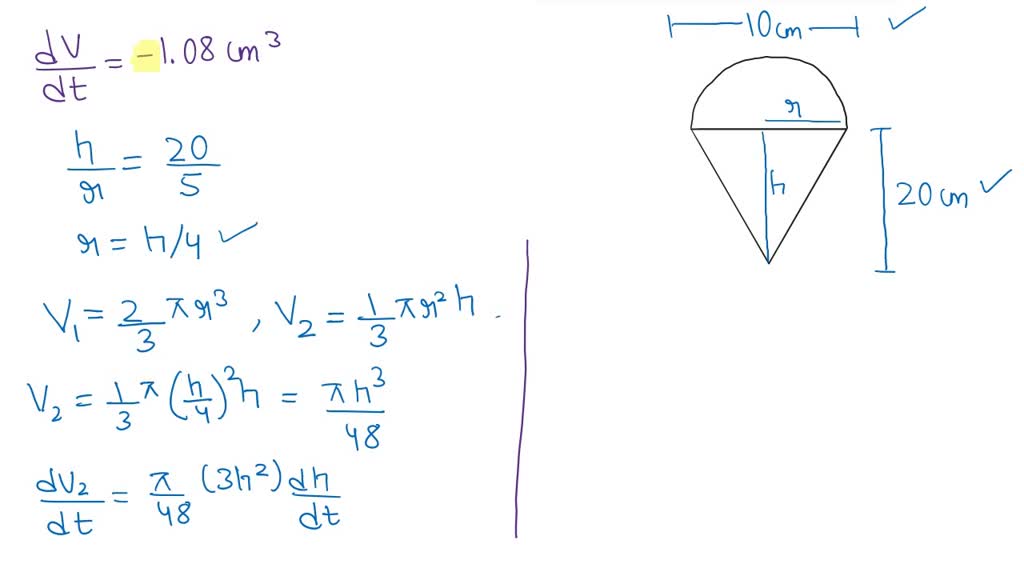 dV/dt = -1.08 cm³
h/r = 20/5
r = h/4 ✓
V₁ = 2/3 πr³, V₂ = 1/3 πr²h.
V₂ = 1/3 π(h/4)²h = πh³/48
dV₂/dt = π/48 (3h²) dh/dt
10cm ✓
r
h
20cm ✓